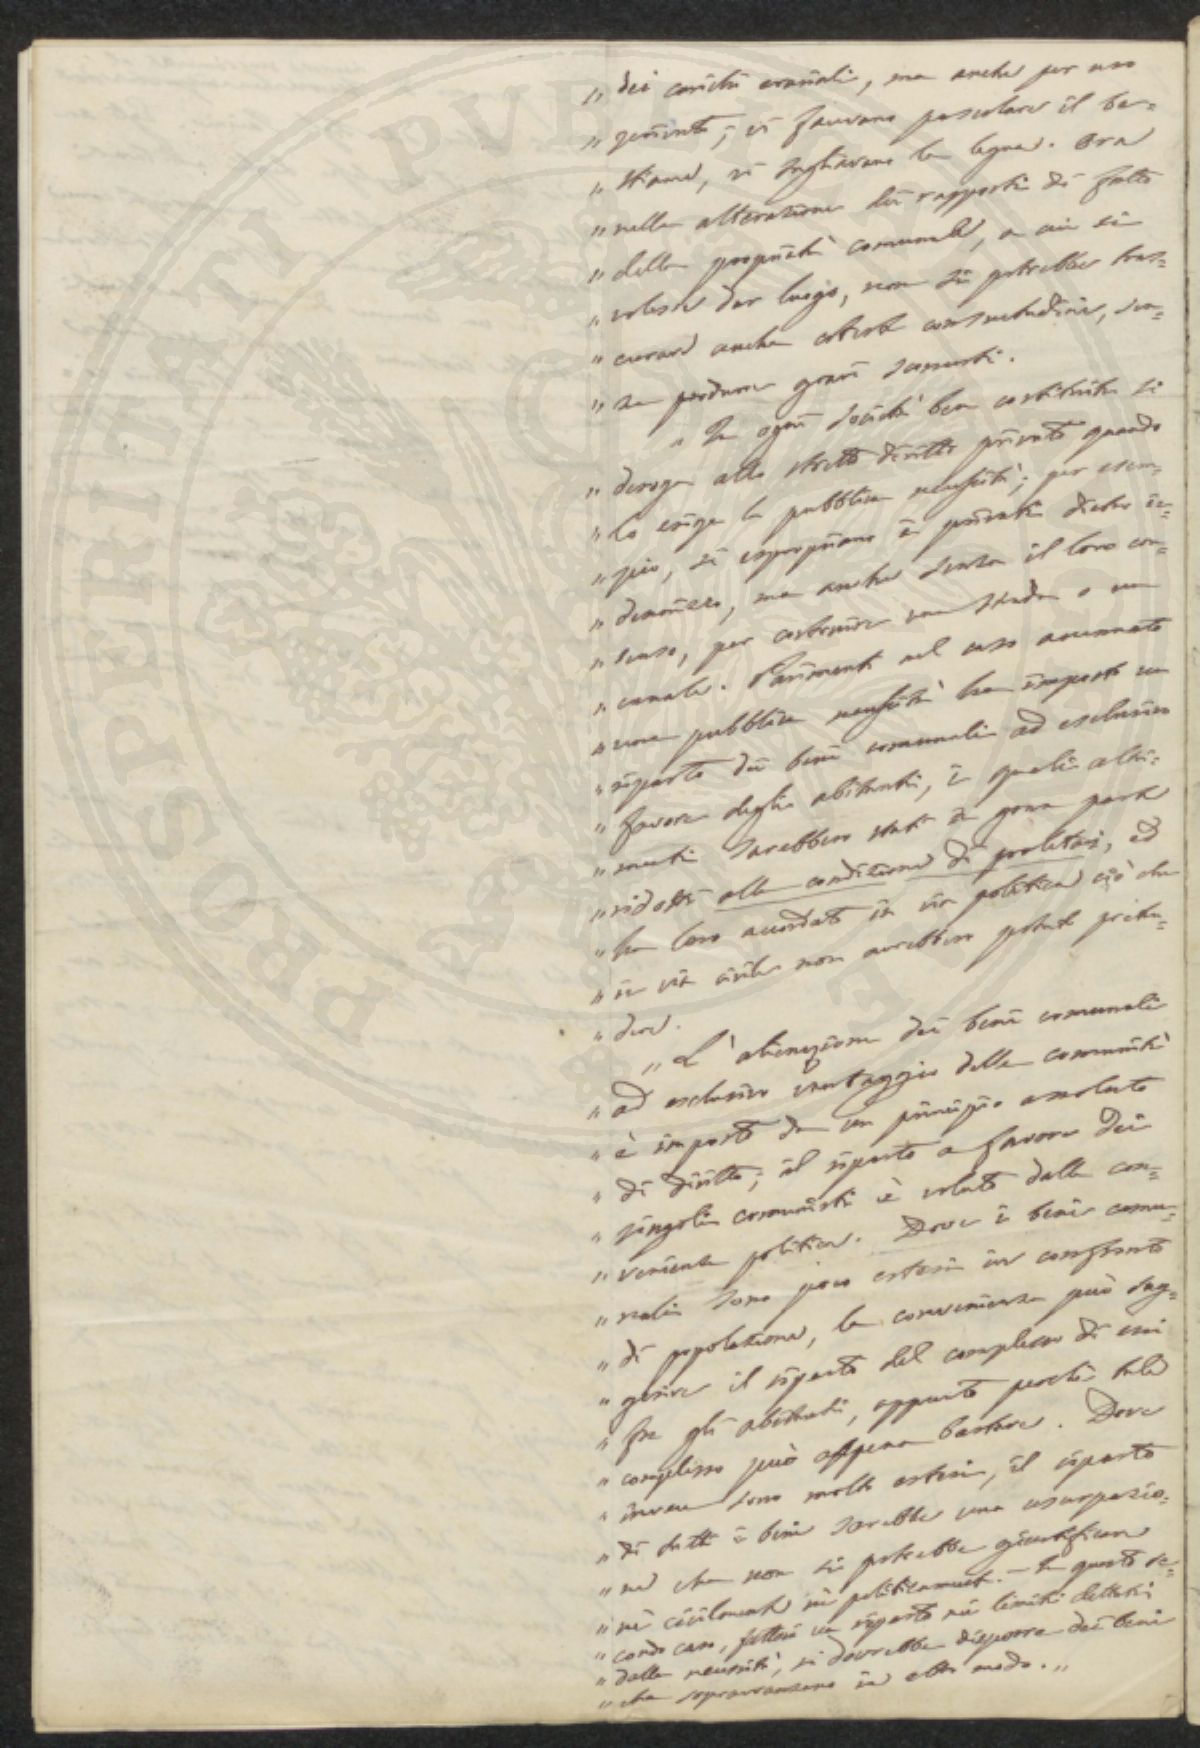 PROSPERITATI PVBLICAE
" dei carichi erariali, ma anche per uso
" gratuito; vi facevano pascolare il be-
" stiame, vi tagliavano la legna. Ora
" nella alterazione dei rapporti di fatto
" della proprietà comunale, a cui si
" volesse dar luogo, non si potrebbe tras-
" curare anche cotesta consuetudine, sen-
" za produrre gravi sconcerti.
" In ogni società ben costituita si
" deroga allo stretto diritto privato quando
" lo esige la pubblica necessità; per esem-
" pio, si espropriano i privati dietro in-
" dennizzo, ma anche senza il loro con-
" senso, per costruire una strada o un
" canale. Parimenti nel caso accennato
" una pubblica necessità ha imposto un
" riparto dei beni comunali ad esclusivo
" favore degli abitanti, i quali altri-
" menti sarebbero stati in gran parte
" ridotti alla condizione di proletarj, ed
" ha loro accordato in via politica ciò che
" in via civile non avrebbero potuto preten-
" dere.
" L'alienazione dei beni comunali
" ad esclusivo vantaggio delle comunità
" è imposto da un principio assoluto
" di diritto; il riparto a favore dei
" singoli comunisti è voluto dalla con-
" venienza politica. Dove i beni comu-
" nali sono poco estesi in confronto
" di popolazione, la convenienza può sug-
" gerire il riparto del complesso di essi
" fra gli abitanti, appunto perché tale
" complesso può appena bastare. Dove
" invece sono molto estesi, il riparto
" di tutti i beni sarebbe una usurpazio-
" ne che non si potrebbe giustificare
" nè civilmente nè politicamente. — In questo se-
" condo caso, fattosi un riparto nei limiti dettati
" dalla necessità, si dovrebbe disporre dei beni
" che sopravanzano in altro modo. "